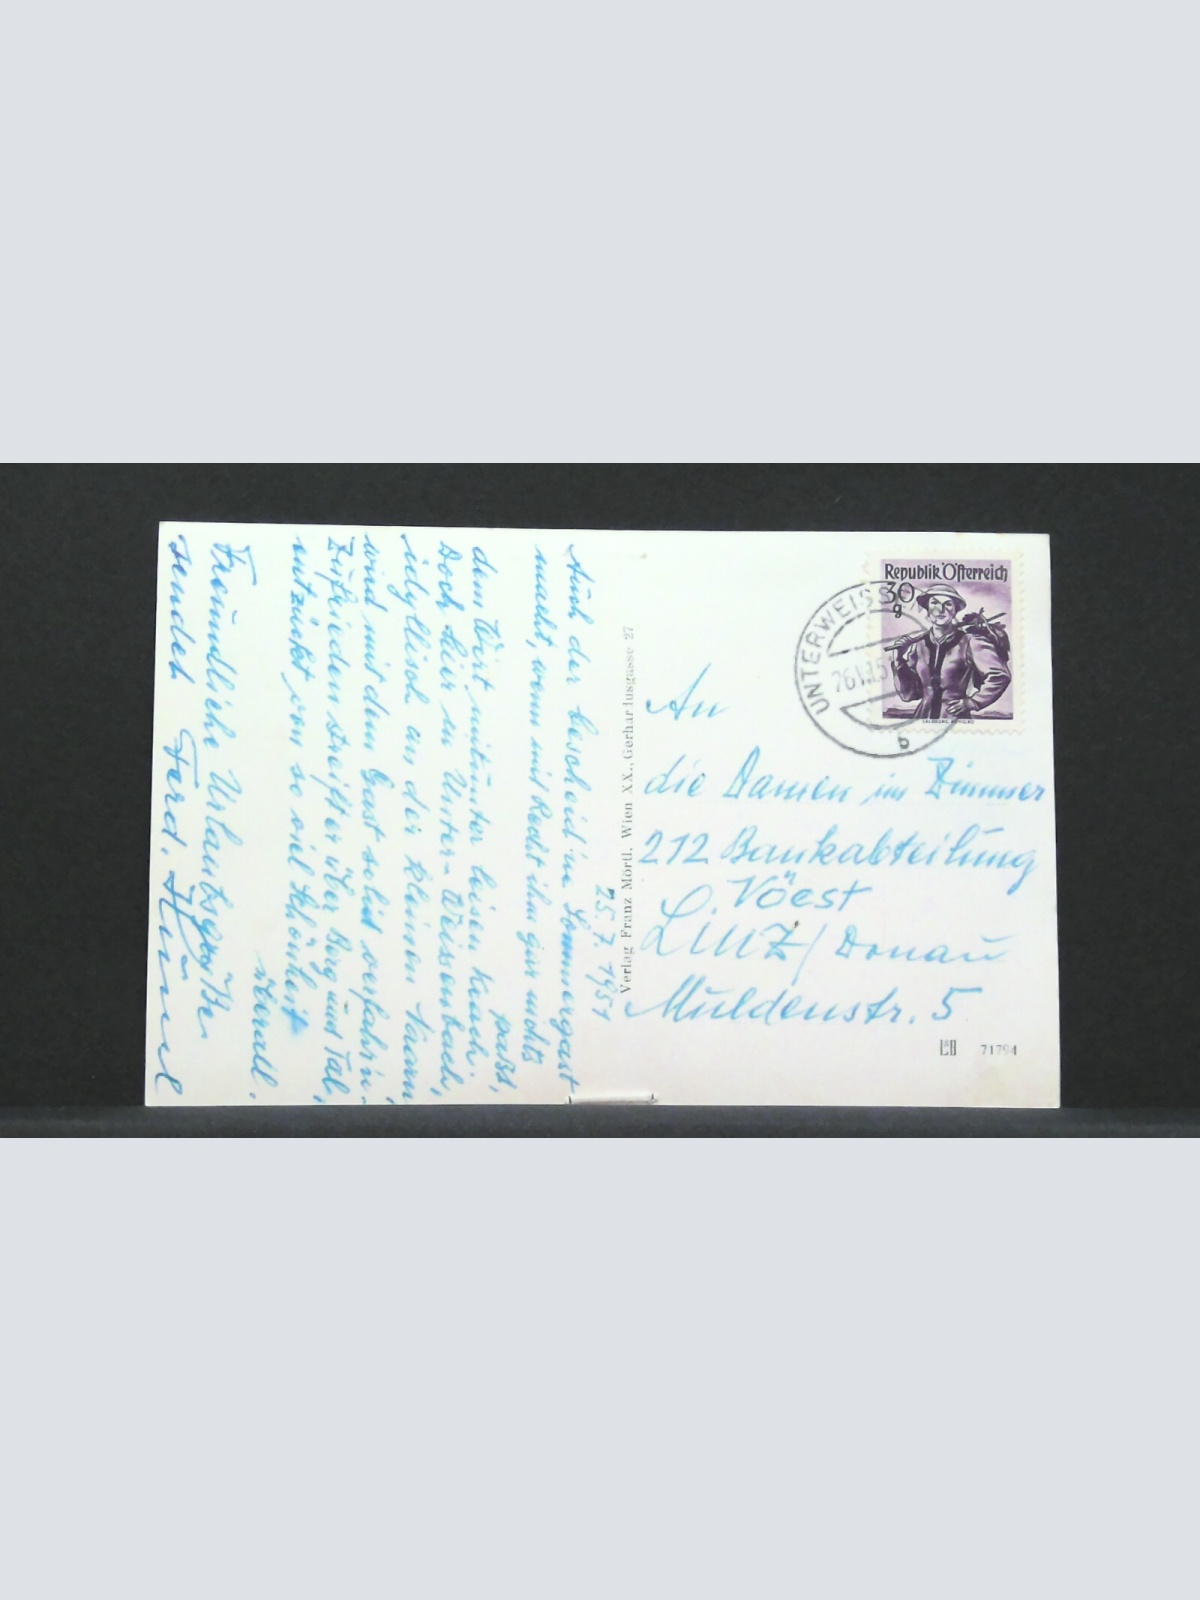 25.7.1951
Auch der bescheid'ne Sommergast
macht, wenn mit Recht ihm gar nichts
passt,
dem Wirt mitunter leisen Krach.
Doch hier in Unter-Weissenbach,
idyllisch an der kleinen Naarn
wird mit dem Gast solid verfahr'n.
Zufrieden streift er über Berg und Tal,
entzückt von so viel Schönheit
überall.
Freundliche Urlaubsgrüße
sendet Ferd.
Verlag Franz Mörtl, Wien XX., Gerhardusgasse 27
Republik Österreich
30
g
UNTERWEISS
b
An
die Damen im Zimmer
212 Bankabteilung
Vöest
Linz/Donau
Muldenstr. 5
71794